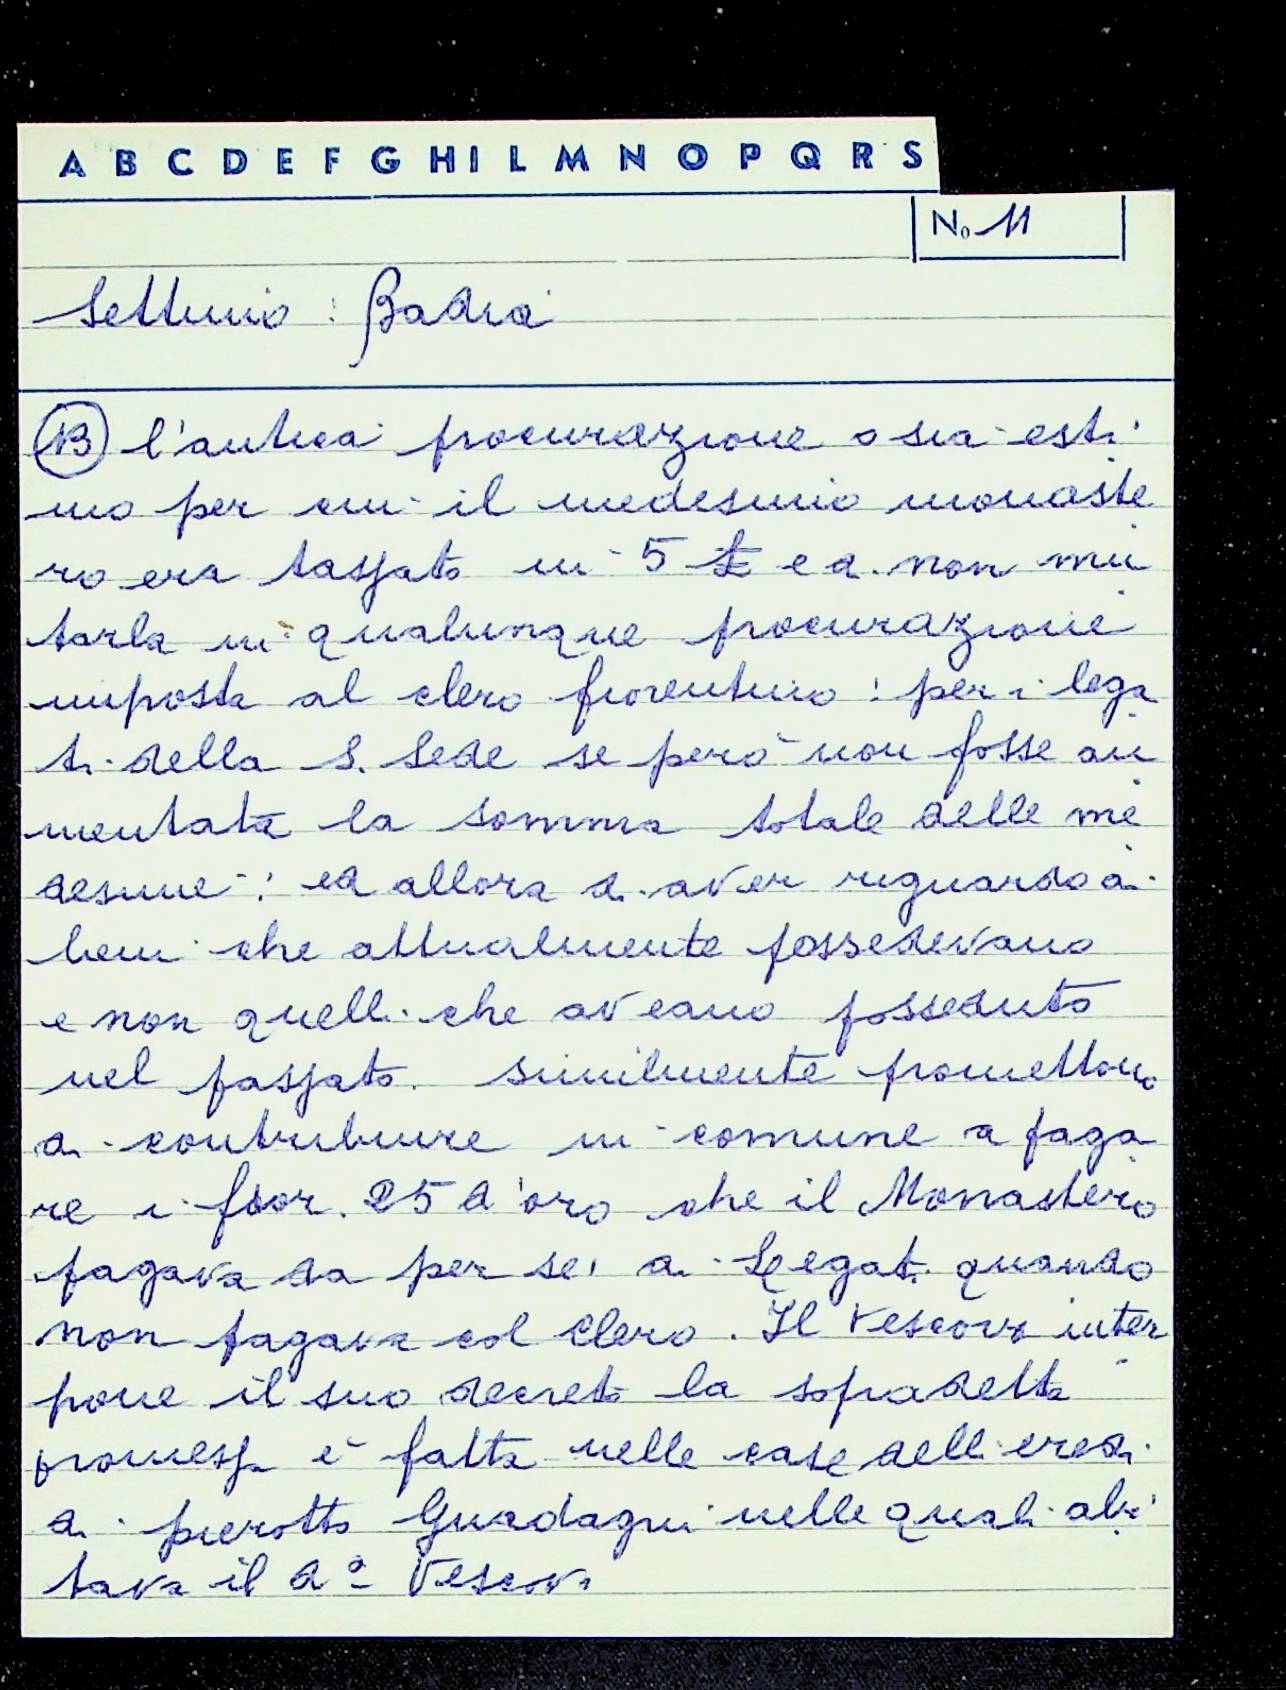 A B C D E F G H I L M N O P Q R S
No 11
Settimo : Badia
(B) l'antica procurazione o sia esti
mo per cui il medesimo monaste
ro era tassato in 5 £ e di non mu
tarla in qualunque procurazione
imposta al clero fiorentino : per i lega
ti della S. Sede se però non fosse au
mentata la somma totale delle me
desime : ed allora di aver riguardo ai
beni che attualmente possedevano
e non quelli che aveano posseduto
nel passato. Similmente promettono
di contribuire in comune a paga
re i fior. 25 d'oro che il Monastero
pagava da per se, ai Legati quando
non pagava col Clero. Il Vescovo inter
pone il suo decreto la sopradetta
promessa è fatta nelle case delli eredi
di pierotto Guadagni nelle quali abi
tava il dº Vescovo